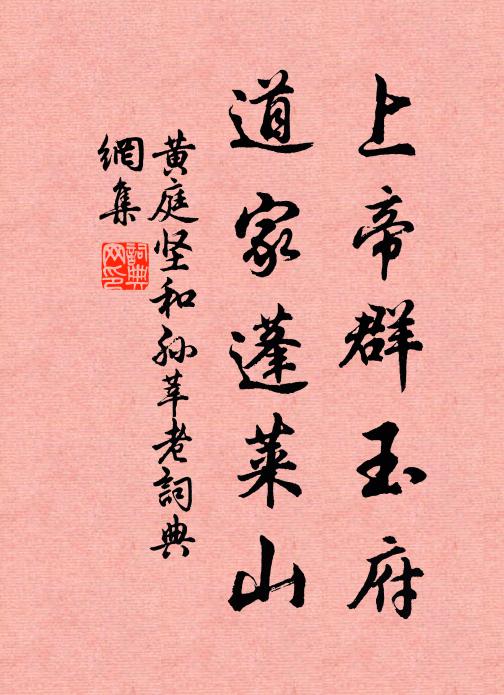 上帝群玉府
道家蓬莱山
黄庭坚和孙莘老詞典
網集
詞典
网印